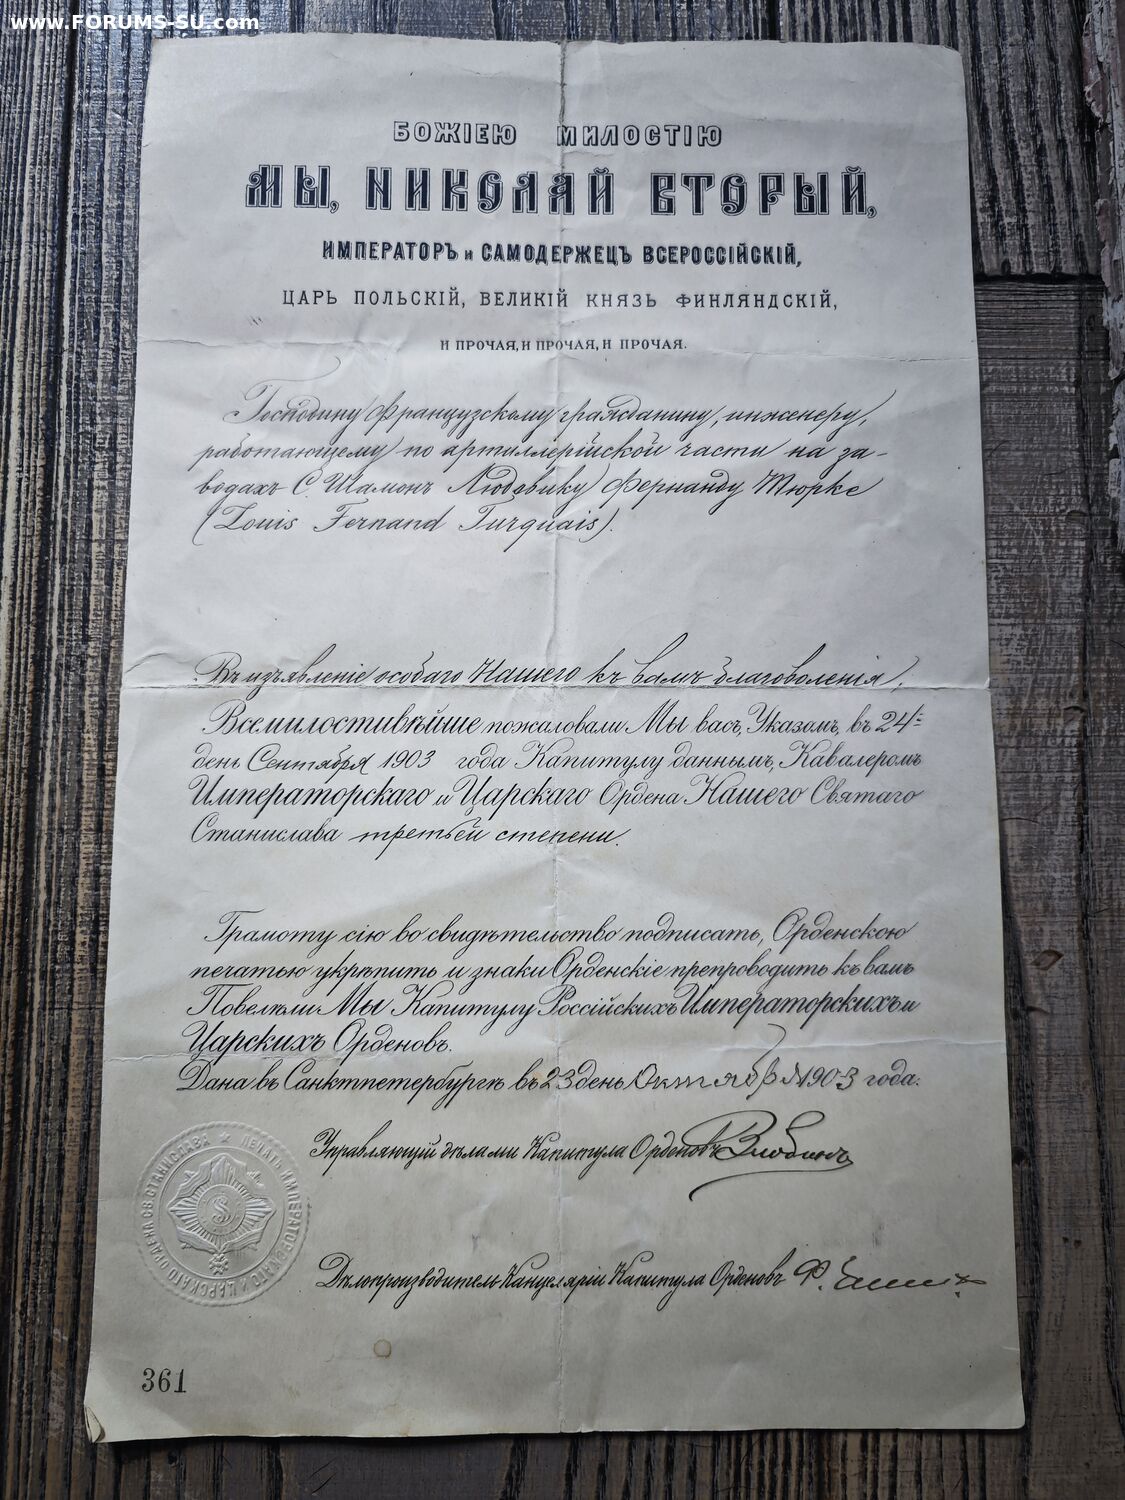 www.FORUMS-SU.com
БОЖІЕЮ МИЛОСТІЮ
МЫ, НИКОЛАЙ ВТОРЫЙ,
ИМПЕРАТОРЪ и САМОДЕРЖЕЦЪ ВСЕРОССІЙСКІЙ,
ЦАРЬ ПОЛЬСКІЙ, ВЕЛИКІЙ КНЯЗЬ ФИНЛЯНДСКІЙ,
И ПРОЧАЯ, И ПРОЧАЯ, И ПРОЧАЯ.
Господину Французскому гражданину, инженеру,
работающему по артиллерійской части на за-
водахъ С. Шамонъ Людовику Фернанду Тюрке
(Louis Fernand Turquais).
Въ изъявленіе особаго Нашего къ вамъ благоволенія,
Всемилостивѣйше пожаловали Мы васъ, Указомъ, въ 24-й
день Сентября 1903 года Капитулу даннымъ, Кавалеромъ
Императорскаго и Царскаго Ордена Нашего Святаго
Станислава третьей степени.
Грамоту сію во свидѣтельство подписать, Орденскою
печатью укрѣпить и знаки Орденскіе препроводить къ вамъ
Повелѣли Мы Капитулу Россійскихъ Императорскихъ и
Царскихъ Орденовъ.
Дана въ Санктпетербургѣ въ 23 день Октября 1903 года.
Управляющій дѣлами Капитула Орденовъ
ПЕЧАТЬ ИМПЕРАТОРСКАГО И ЦАРСКАГО ОРДЕНА СВ. СТАНИСЛАВА
Дѣлопроизводитель Канцеляріи Капитула Орденовъ
361